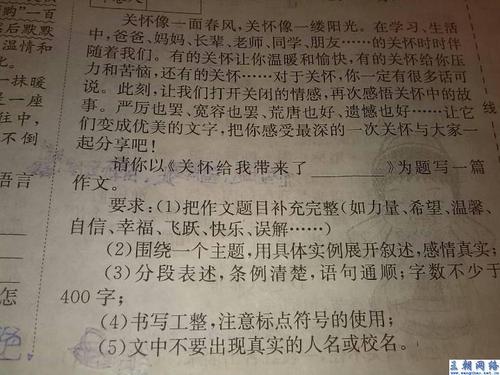 关怀像一面春风,关怀像一缕阳光。在学习、生活
中,爸爸、妈妈、长辈、老师、同学、朋友……的关怀时时伴
随着我们。有的关怀让你温暖和愉快,有的关怀给你压
力和苦恼,还有的关怀……对于关怀,你一定有很多话可
说。此刻,让我们打开闭的情感,再次感悟关怀中的故
事。严厉也罢、宽容也罢、荒唐也好、遗憾也好……让它
们变成优美的文字,把你感受最深的一次关怀与大家一
起分享吧!
请你以《关怀给我带来了________》为题写一篇
作文。
要求:(1)把作文题目补充完整(如力量、希望、温馨、
自信、幸福、飞跃、快乐、误解……)
(2)围绕一个主题,用具体实例展开叙述,感情真实;
(3)分段表述,条例清楚,语句通顺;字数不少于
400字;
(4)书写工整,注意标点符号的使用;
(5)文中不要出现真实的人名或校名。
购”一百
后默默
温情和
一抹暖
是一座
往中,
不倒
语言
怎
线
王朝网络
www.wangchao.net.cn